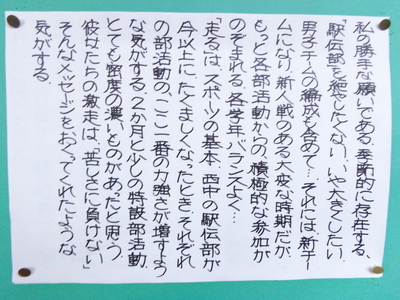 私の勝手な願いである。季節的に存在する、
「駅伝部を絶したくない、いや大きくしたい」
男子チームの編成も含めて…それには、新チー
ムになり、新人戦のある大変な時期だが、
もっと各部活動からの積極的な参加が
のぞまれる。各学年バランスよく…
「走る」は、スポーツの基本、西中の駅伝部が
今以上に、たくましくなったとき、それぞれ
の部活動の、ここ一番の力強さが増すよう
な気がする。2か月と少しの特設部活動、
とても密度の濃いものがあったと思う。
彼女たちの激走は、「苦しさに負けない」
そんなメッセージをおくってくれたような
気がする。